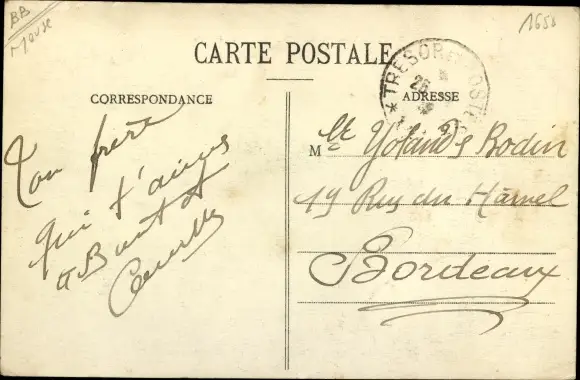 BB
Meuse
1650
CARTE POSTALE
TRESOR ET POSTES
26
CORRESPONDANCE
ADRESSE
Ton frère
qui t'aime
a Bientot
Camille
Mlle Yolande Bodin
19 Rue du Hamel
Bordeaux